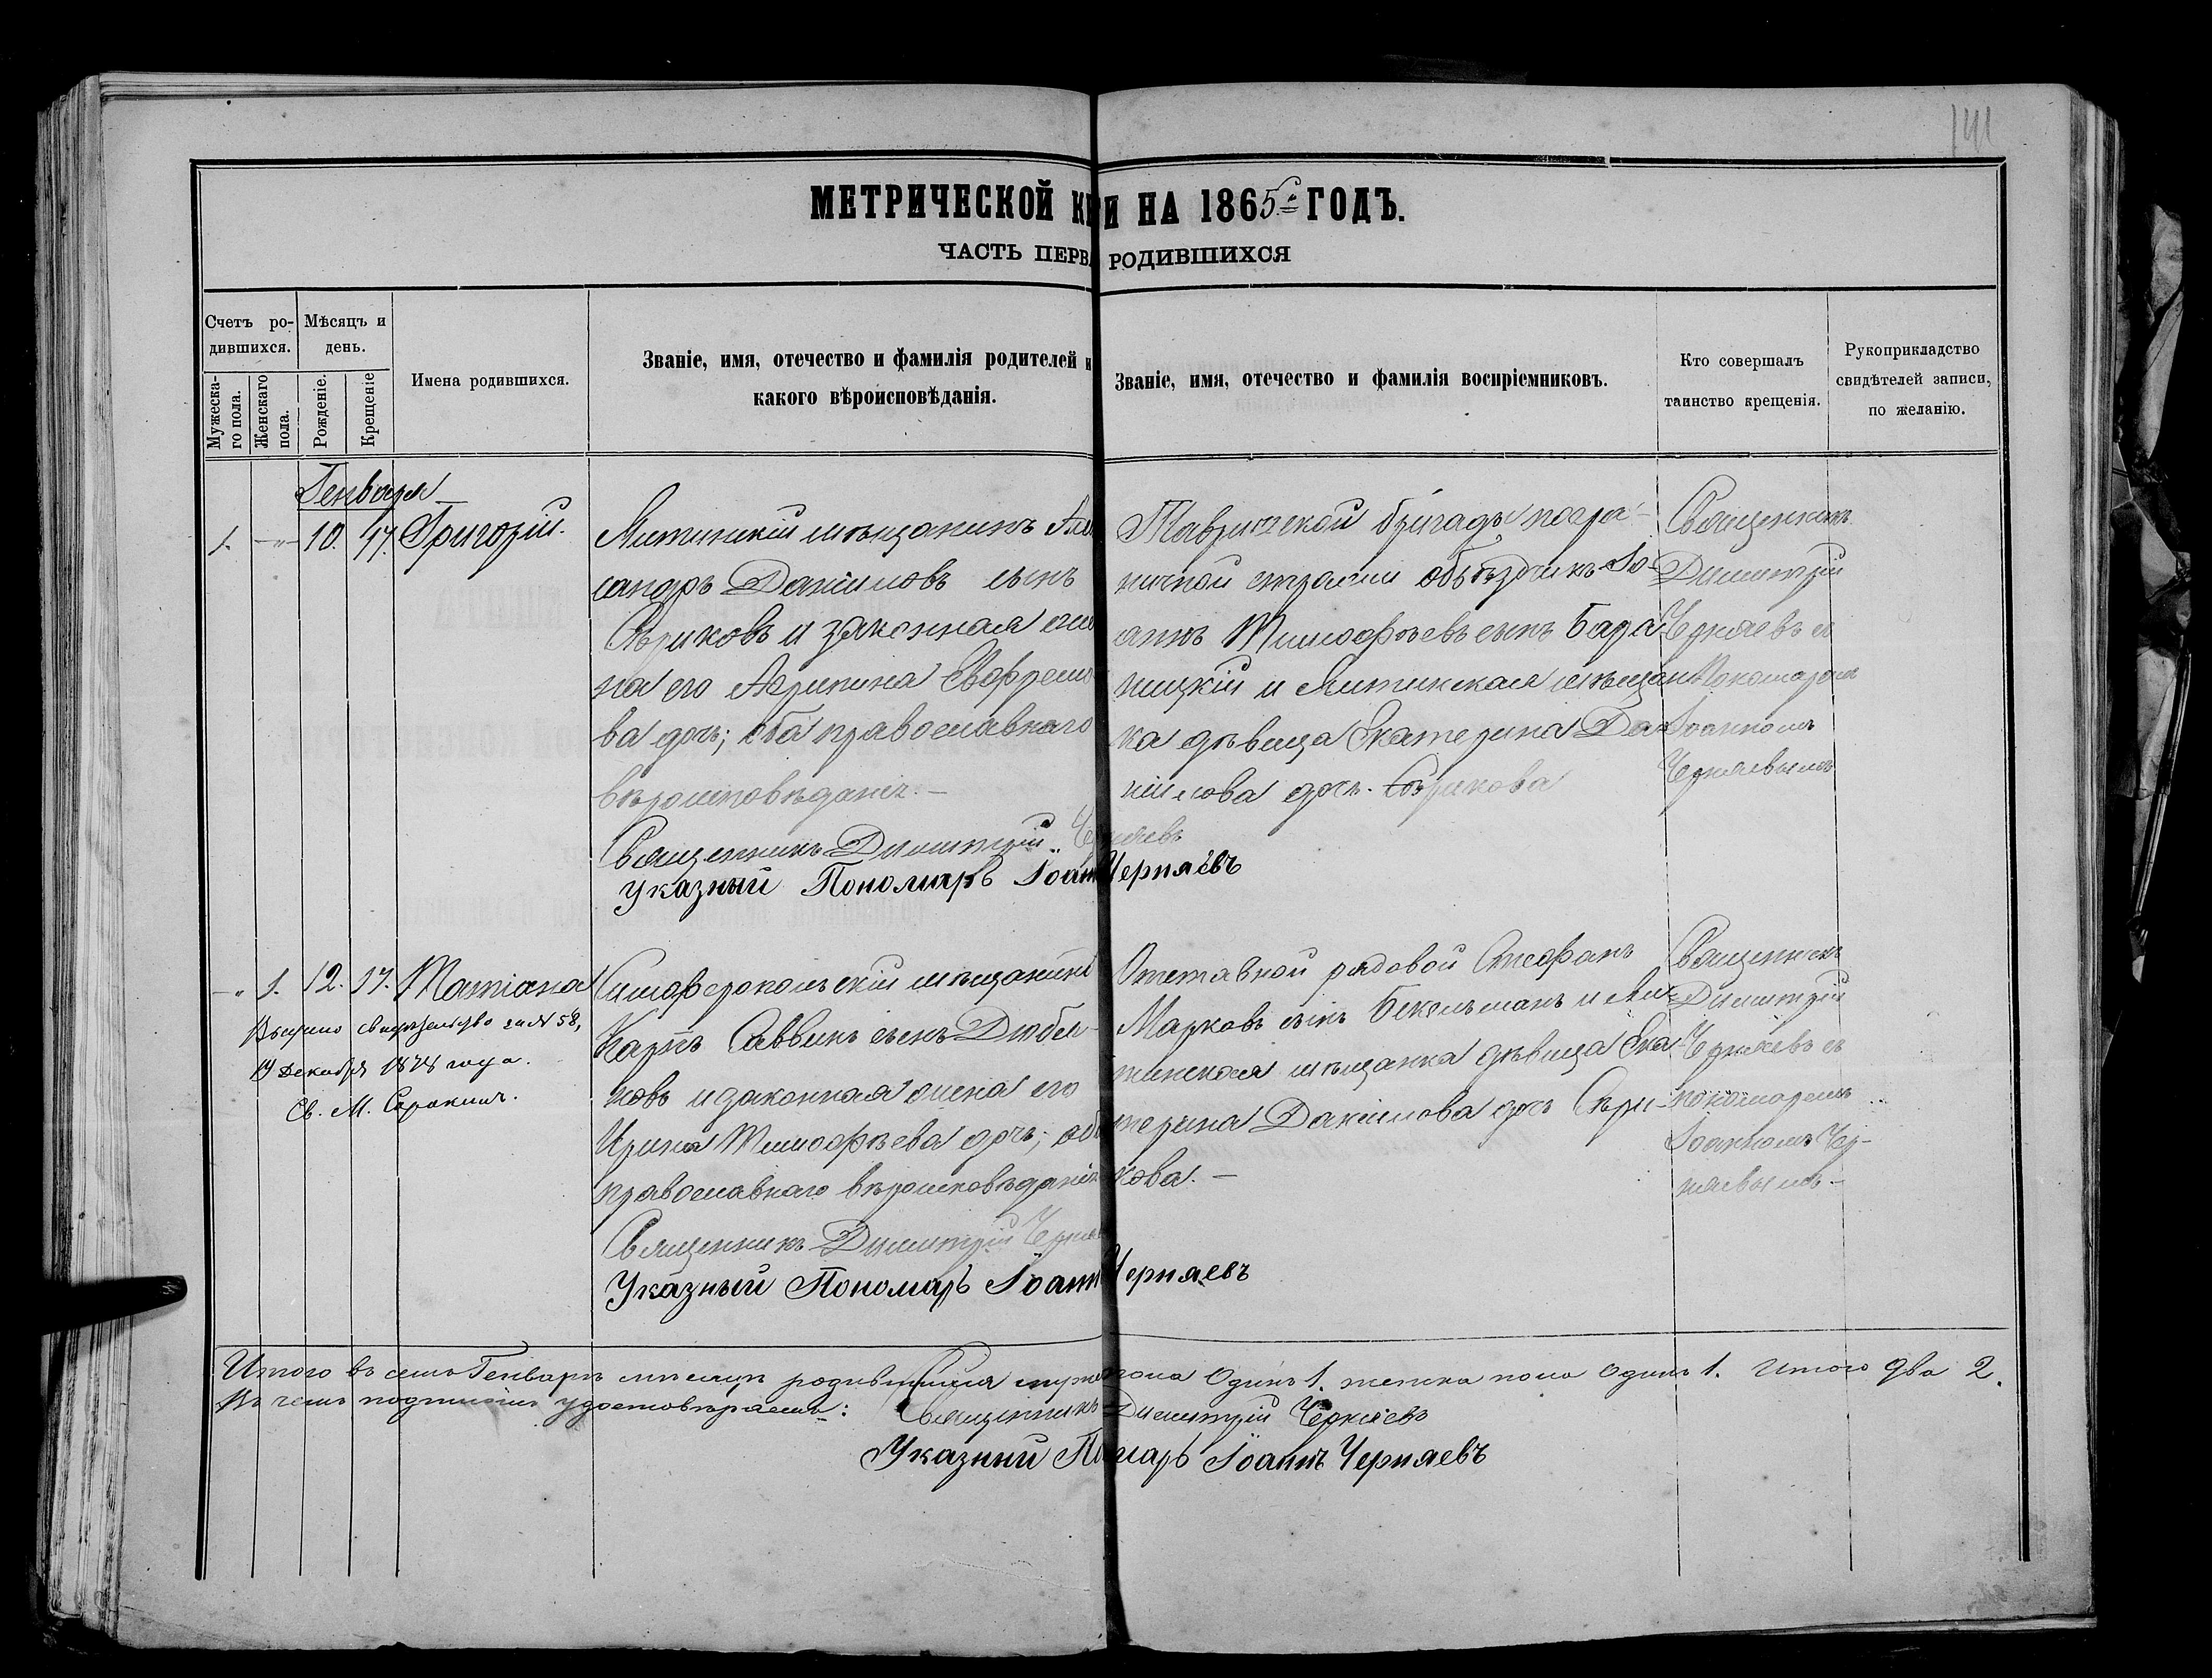 141
МЕТРИЧЕСКОЙ КН И НА 1865й ГОДЪ.
ЧАСТЬ ПЕРВА РОДИВШИХСЯ
Счетъ ро-
дившихся.
Мужеска-
го пола.
Женскаго
пола.
Мѣсяцъ и
день.
Рожденіе.
Крещеніе
Имена родившихся.
Званіе, имя, отечество и фамилія родителей и
какого вѣроисповѣданія.
Званіе, имя, отечество и фамилія воспріемниковъ.
Кто совершалъ
таинство крещенія.
Рукоприкладство
свидѣтелей записи,
по желанію.
Генваря
1. — „ — 10. 17. Григорій.
мѣщанинъ Але
сандръ Даніиловъ сынъ
Сѣриковъ и законная же
на его Агрипина Евфремо
ва дочь; оба православнаго
вѣроисповѣданія. —
Священникъ Димитрій Черняевъ
Указный Пономарь Іоан Черняевъ
Таврической бригады погра-
ничной стражи объѣздчикъ Іо-
аннъ Тимофѣевъ сынъ Бара
ницкій и мѣщан
ка дѣвица Екатерина Да
ніилова дочь Сѣрикова
Священникъ
Димитрій
Черняевъ съ
Пономаремъ
Іоанномъ
Черняевымъ
— „ 1. 12. 17. Татіана
Выдано свидѣтельство за № 58,
19 Декабря 1878 года.
Св. М. Сорокинъ.
Симферопольскій мѣщанинъ
Карпъ Саввинъ сынъ Дюбел-
ковъ и законная жена его
Ирина Тимофѣева дочь; оба
православнаго вѣроисповѣданія
Священникъ Димитрій Черня
Указный Пономарь Іоанн Черняевъ
Отставной рядовой Стефанъ
Марковъ сынъ Бекельманъ и
мѣщанка дѣвица Ека-
терина Даніилова дочь Сѣри-
кова. —
Священникъ
Димитрій
Черняевъ съ
пономаремъ
Іоанномъ Чер-
няевымъ —
Итого въ семъ Генварѣ мѣсяцѣ родившихся муже пола одинъ 1. женска пола одинъ 1. Итого два 2.
Въ чемъ подписомъ удостовѣряемъ: Священникъ Димитрій Черняевъ
Указный По марь Іоаннъ Черняевъ